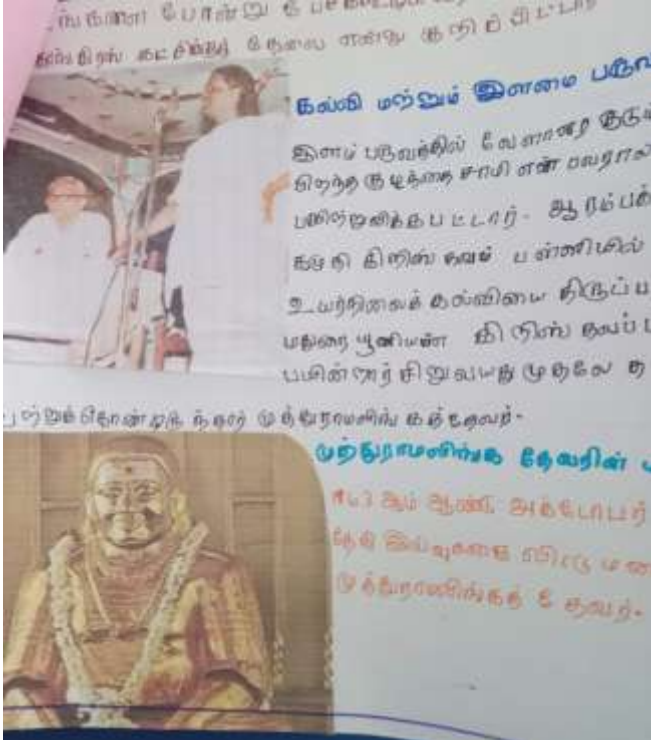 போன்று
தேவை என்று குறிப்பிட்டார்
கல்வி மற்றும் இளமை பருவ
இளம் பருவத்தில் வேளாளர் குடும்
பிறந்த குழந்தை சாமி என்பவரால்
பயிற்றுவிக்கபட்டார். ஆரம்பக்
கமுதி கிறிஸ்தவ பள்ளியில்
உயர்நிலைக் கல்வியை திருப்ப
மதுரை யூனியன் கிறிஸ்தவப் ப
பயின்றார் சிறுவயது முதலே த
முத்துராமலிங்கத்தேவர்.
முத்துராமலிங்க தேவரின்
1963 ஆம் ஆண்டு அக்டோபர்
தேதி இவ்வுலகை விட்டு
முத்துராமலிங்கத் தேவர்.